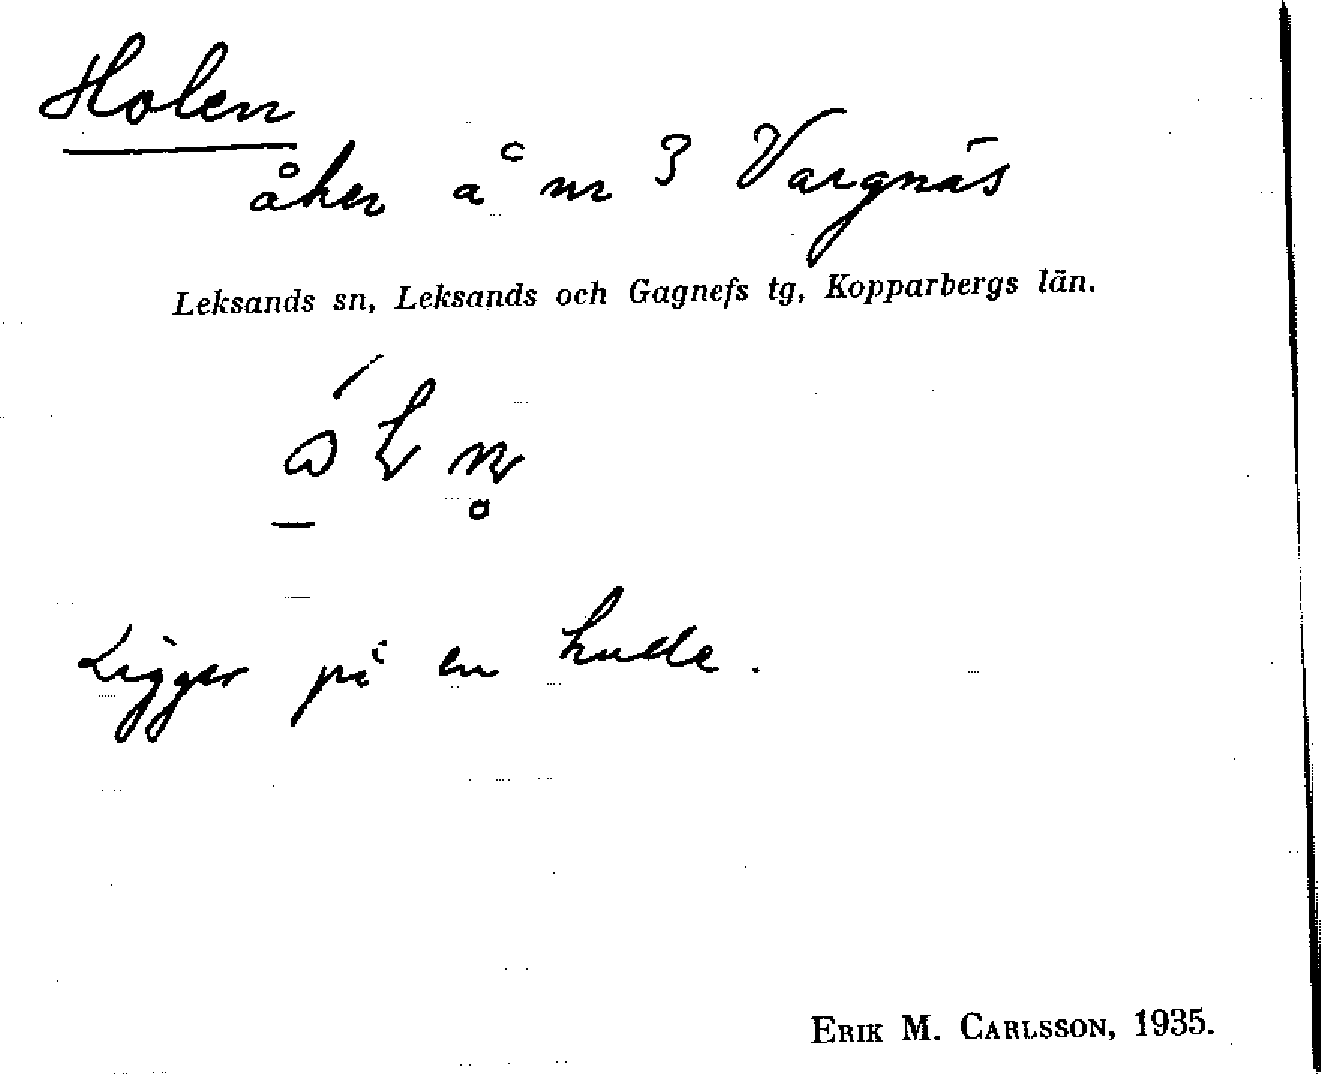 Holen
åker å nr 3 Vargnäs
Leksands sn, Leksands och Gagnefs tg, Kopparbergs län.
Ligger på en kulle.
ERIK M. CARLSSON, 1935.